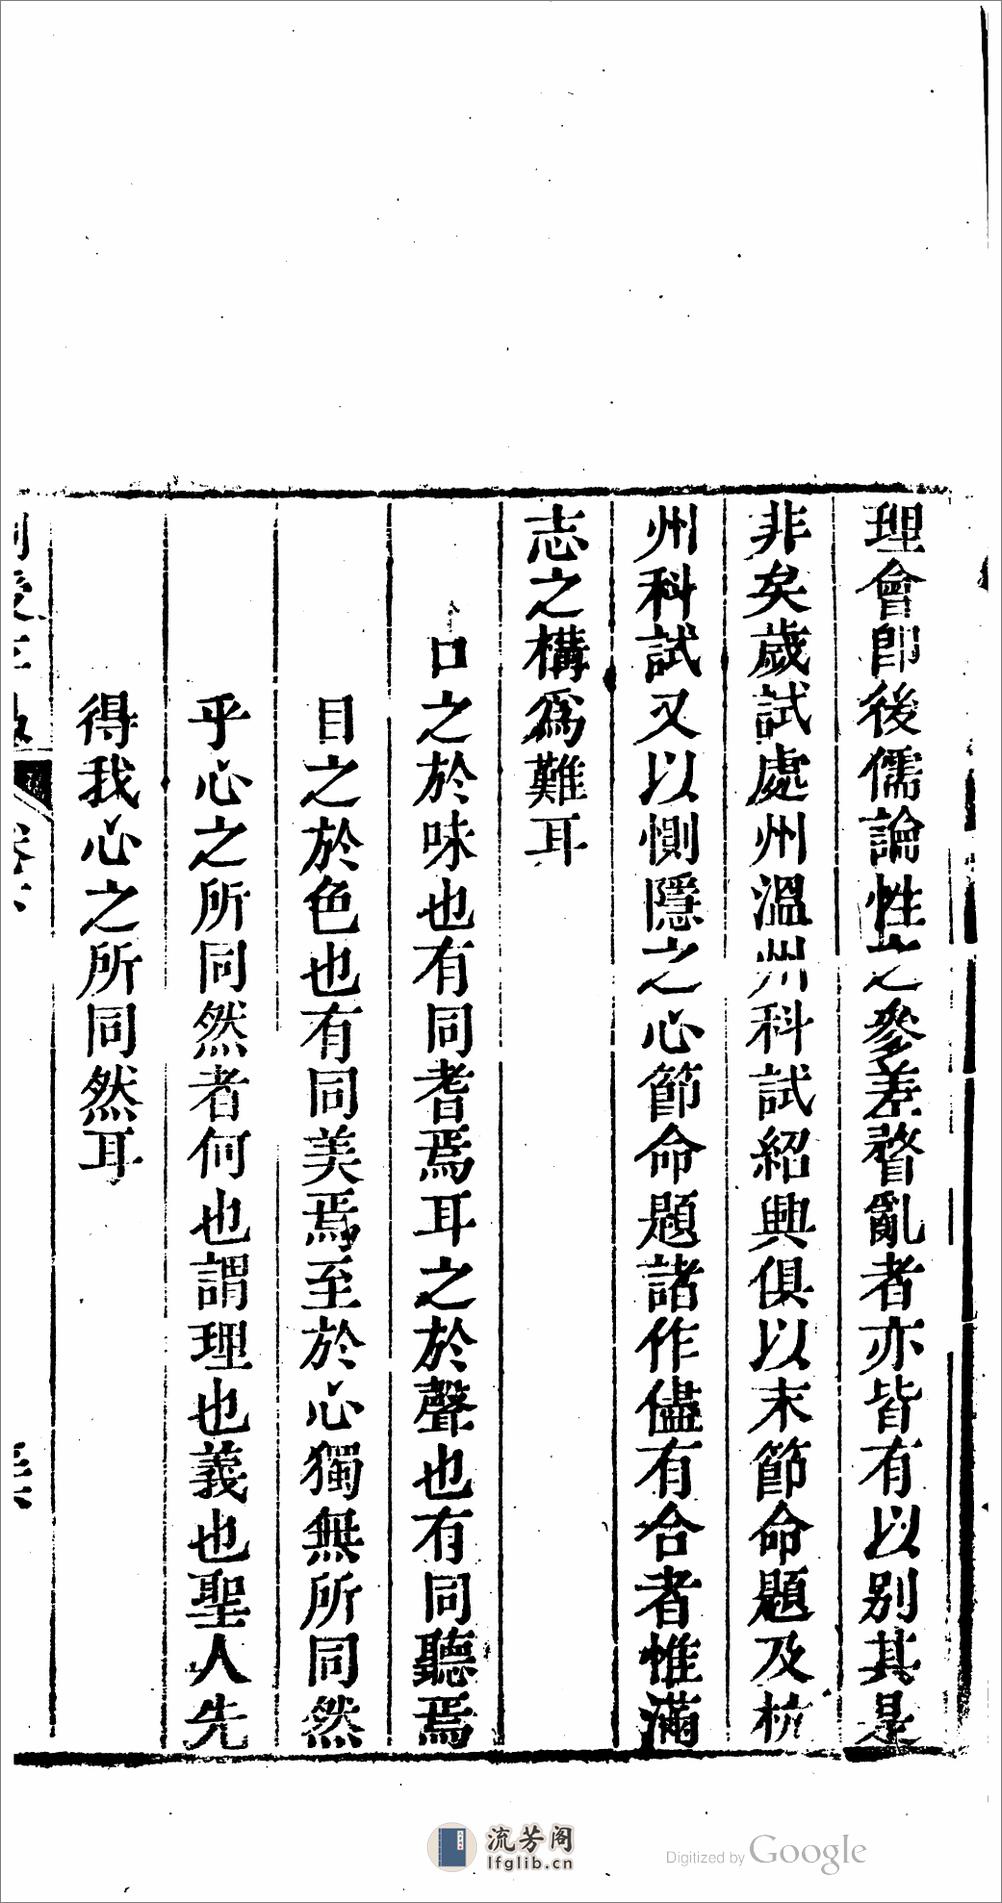 理會卽後儒論性之參差瞀亂者亦皆有以别其是
非矣歲試處州溫州科試紹興俱以末節命題及杭
州科試又以惻隱之心節命題諸作儘有合者惟滿
志之構爲難耳
口之於味也有同耆焉耳之於聲也有同聽焉
目之於色也有同美焉至於心獨無所同然
乎心之所同然者何也謂理也義也聖人先
得我心之所同然耳
流芳阁
lfglib.cn
Digitized by Google